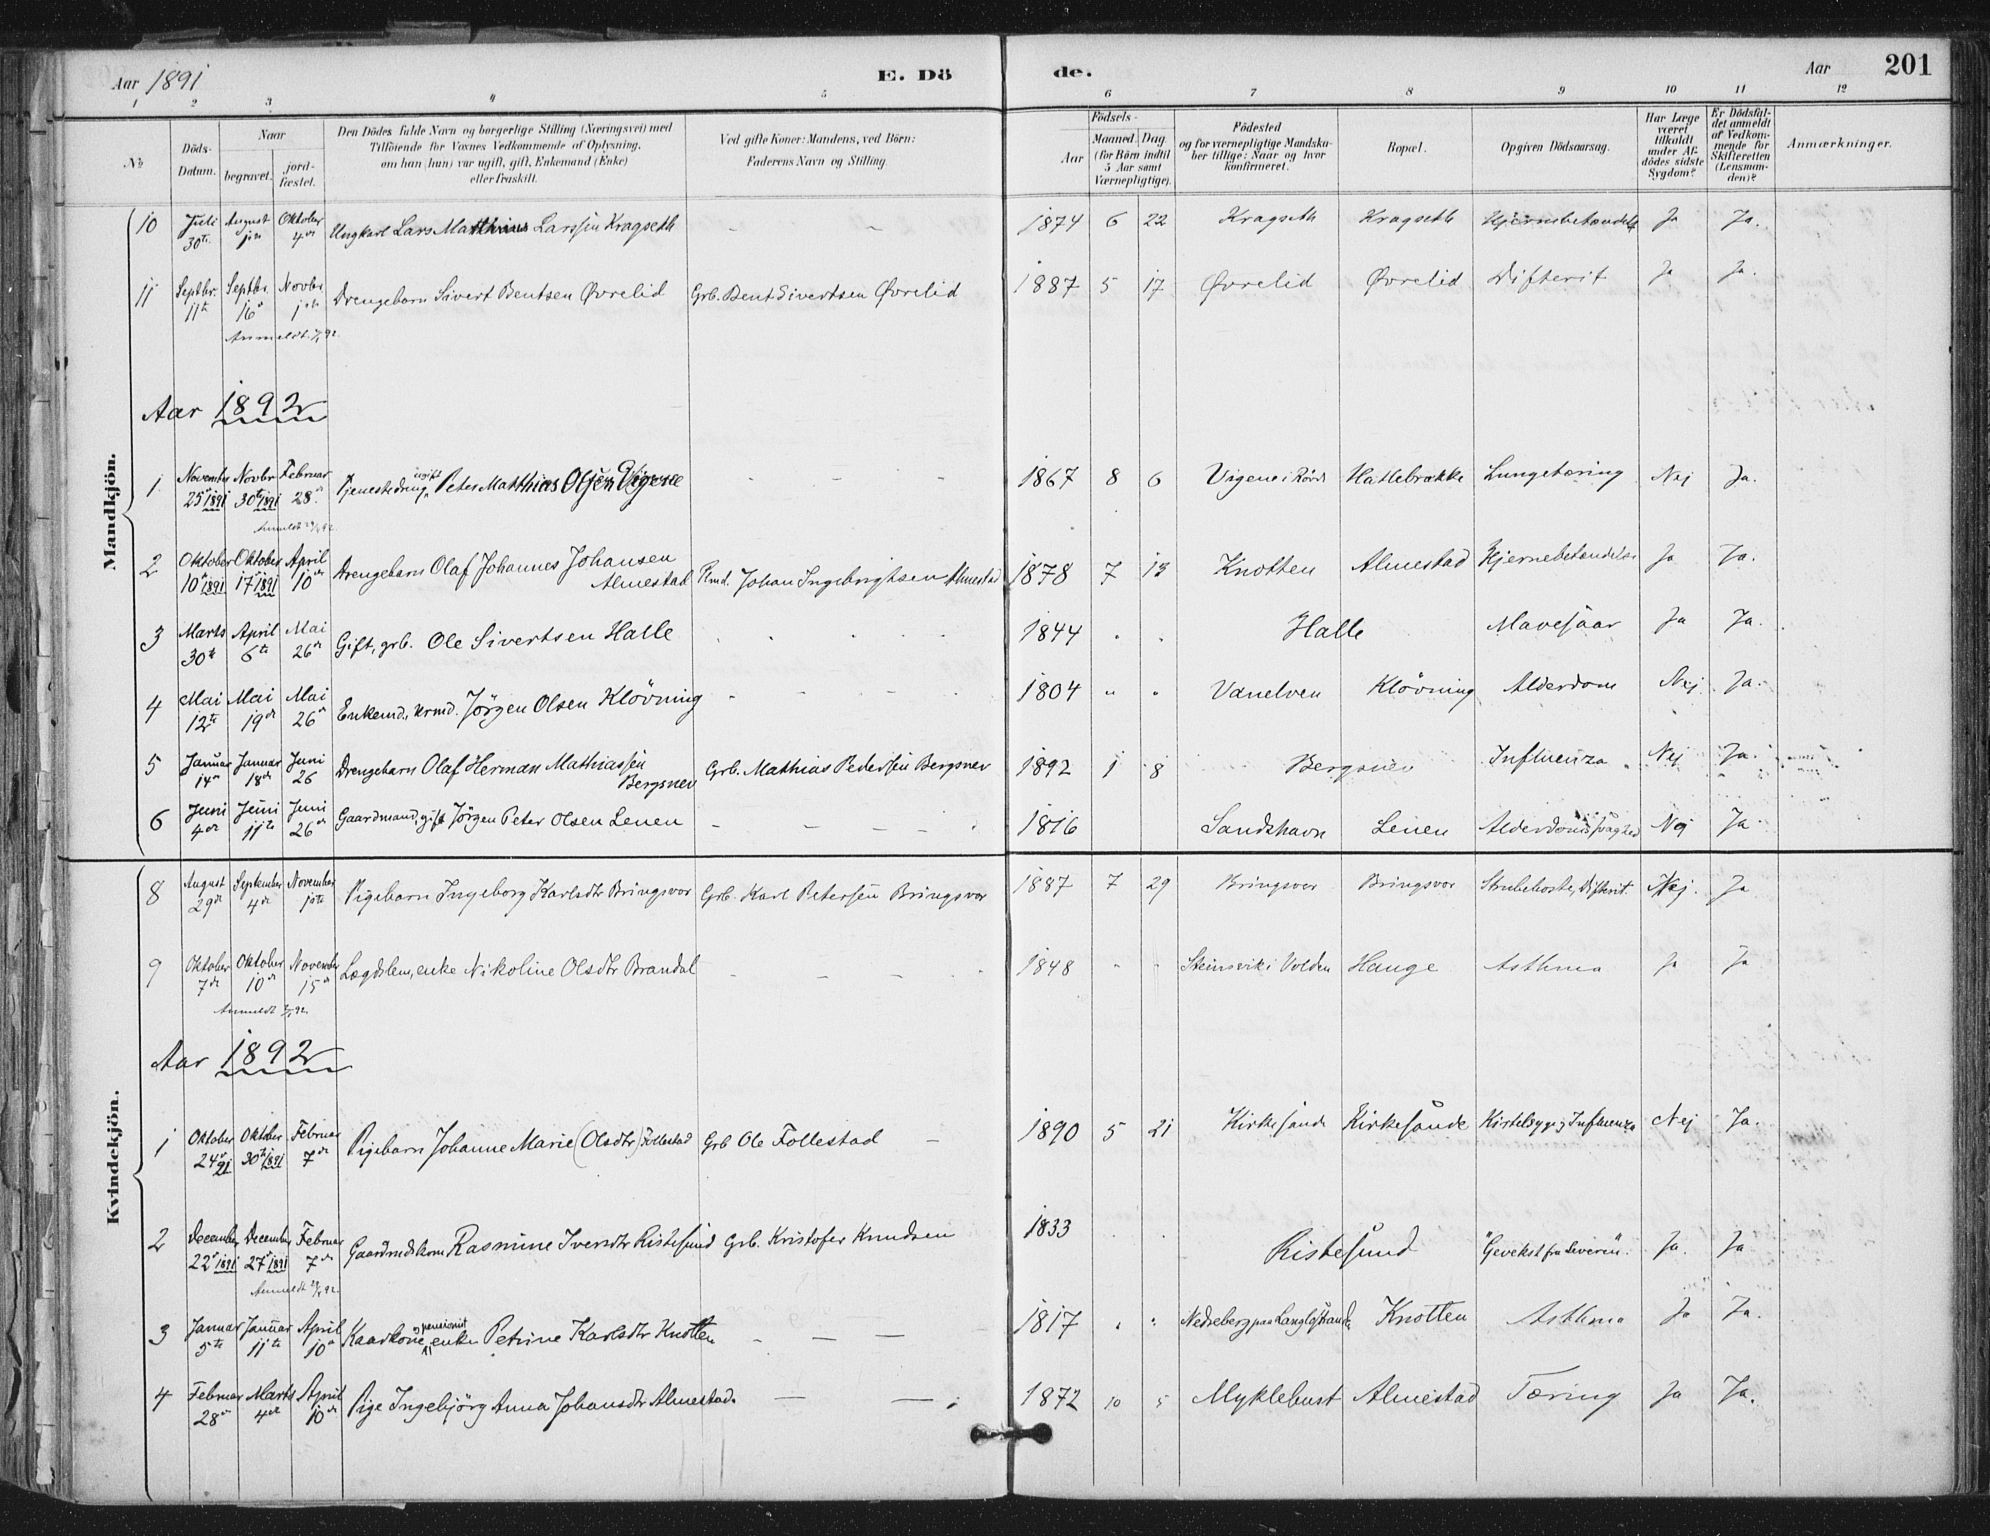 Aar 1891 E. Dö de. Aar 201
1 2 3 4 5 6 7 8 9 10 11 12
No Döds-Datum. Naar begravet. jordfæstet. Den Dödes fulde Navn og borgerlige Stilling (Næringsvei) med Tilföiende for Voxnes Vedkommende af Oplysning, om han (hun) var ugift, gift, Enkemand (Enke) eller fraskilt. Ved gifte Koner: Mandens, ved Börn: Faderens Navn og Stilling. Födsels- Aar Maaned. Dag. (for Börn indtil 5 Aar samt Værnepligtige). Födested og for værnepligtige Mandskaber tillige: Naar og hvor konfirmeret. Bopæl. Opgiven Dödsaarsag. Har Læge været tilkaldt under Afdödes sidste Sygdom? Er Dödsfaldet anmeldt af Vedkommende for Skifteretten (Lensmanden)? Anmærkninger.
Mandkjön.
10 Juli 30te August Oktober 4de Ungkarl Lars Matthias Larssen Kragseth - - 1874 6 22 Kragseth Kragseth Hjernebetændelse Ja Ja.
11 Septbr. 11te Septbr. 16de Novbr 1ste Drengebarn Sivert Bentsen Øvrelid Grb. Bent Sivertsen Øvrelid 1887 5 17 Øvrelid Øvrelid Difterit Ja Ja.
Aar 1892
1 November 25de 1891 Novbr 30te 1891 Februar 28de Tjenestedreng, ugift Peter Matthias Olsen Vigene - - - 1867 8 6 Vigene i Hatlebrække Lungetæring Nej Ja.
2 Oktober 10de 1891 Oktober 17de 1891 April 10de Drengebarn Olaf Johannes Johansen Almestad Johan Ingebrigtsen Almestad 1878 7 13 Knotten Almestad Hjernebetændelse Ja Ja.
3 Marts 30te April 6te Mai 26de Gift, grb. Ole Sivertsen Halle 1844 Halle Mavesaar Ja Ja.
4 Mai 12te Mai 19de Mai 26de Enkemd., Jörgen Olsen Klövning - - - 1804 " " Vanelven Klövning Alderdom Nej Ja.
5 Januar 14de Januar 18de Juni 26 Drengebarn Olaf Herman Mathiassen Bergsnev Grb. Mathias Pedersen Bergsnev 1892 1 8 Bergsnev Influenza Nej Ja.
6 Juni 4de Juni 11te Juni 26de Gaardmand, gift Jörgen Peter Olsen Lenen - - - 1816 Sandshavn Lenen Alderdomssvaghed Nej Ja
Kvindekjön.
8 August 29de September 4de November 1ste Pigebarn Ingeborg Karlsdtr Bringsvor Grb. Karl Petersen Bringsvor 1887 7 29 Bringsvor Bringsvor Strubehoste, Difterit. Nej. Ja
9 Oktober 7de Oktober 10de November 15de Lægdslem, enke Nikoline Olsdtr Brandal - - - 1848 " " Steinsvik i Volden Hauge Asthma Ja Ja
Aar 1892
1 Oktober 24de 91 Oktober 30te 1891 Februar 7de Pigebarn Johanne Marie (Olsdtr) Follestad Grb Ole Follestad - 1890 5 21 Kirkesande Kirkesande Kirtelsyge, Influenza Nej Ja.
2 December 22de 1891 December 27de 1891 Februar 7de Gaardmdskone Rasmine Iversdtr Ristesund Grb. Kristofer Knudsen 1833 Ristesund "Gevekst fra Leveren". Ja. Ja
3 Januar 5te Januar 11te April 10de Kaarkone, og pensionist enke Petrine Karlsdtr Knotten - - - 1817 Nedreberg paa Knotten Asthma Ja Ja.
4 Februar 28de Marts 4de April 10de Pige Ingebjörg Anna Johansdtr Almestad. - - 1872 10 5 Myklebust Almestad Tæring Ja Ja.